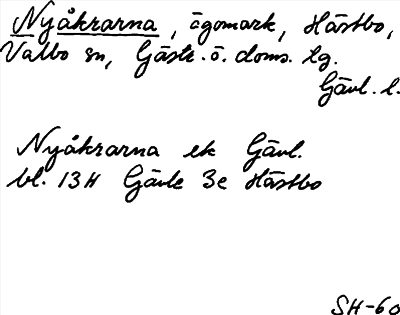 Nyåkrarna, ägomark, Hästbo,
Valbo sn, Gästr. ö. doms. lg.
Gävl. l.
Nyåkrarna ek Gävl.
bl. 13H Gävle 3e Hästbo
SH-60